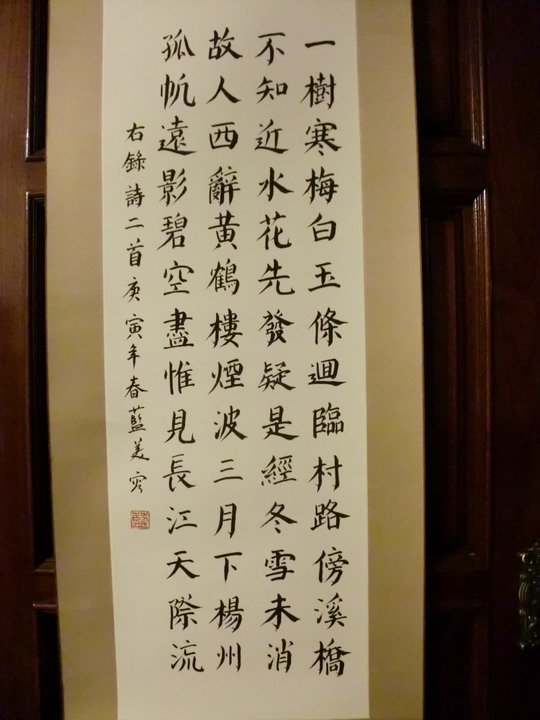 一樹寒梅白玉條迴臨村路傍溪橋
不知近水花先發疑是經冬雪未消
故人西辭黃鶴樓煙波三月下楊州
孤帆遠影碧空盡惟見長江天際流
右錄詩二首庚寅年春藍美容